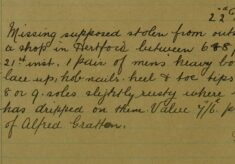 22nd
Missing supposed stolen from outs
a shop in Hertford between 6 & 8
21st inst. 1 pair of mens heavy bo
lace up, hob nails. heel & toe tips
8 or 9. soles slightly rusty where
has dripped on them. Value 7/6. p
of Alfred Gratton.